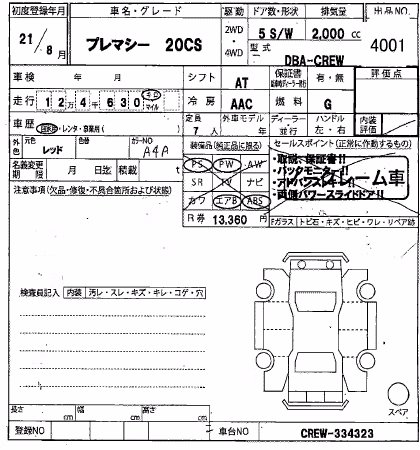 初度登録年月 車名・グレード 駆動 ドア数・形状 排気量 出品NO.
21/8月 プレマシー 20CS 2WD・4WD 5 S/W 2,000 cc 4001
型式 DBA-CREW
車検 年 月 シフト AT 保証書 有・無 評価点
走行 12万4千630 キロ マイル 冷房 AAC 燃料 G
車歴 自家用・レンタ・事業用( ) 定員 7人 外車モデル 年 ディーラー・並行 ハンドル 左・右 内装評価
外色 元色 レッド 色替 カラーNO A4A 装備品(純正品に限る) セールスポイント(正常に作動するもの)
名義変更期限 月 日迄 積載 t PS PW AW ・取説、保証書!!
注意事項(欠品・修復・不具合箇所および状態) SR TV ナビ ・バックモニター!!
カワ エアB ABS ・アドバンストキー!!
・両側パワースライドドア!!
クレーム車
R券 13,360 円 Fガラス トビ石・キズ・ヒビ・ワレ・リペア跡
検査員記入 内装 汚レ・スレ・キズ・キレ・コゲ・穴
スペア
長さ cm 幅 cm 高さ cm
登録NO 車台NO CREW-334323